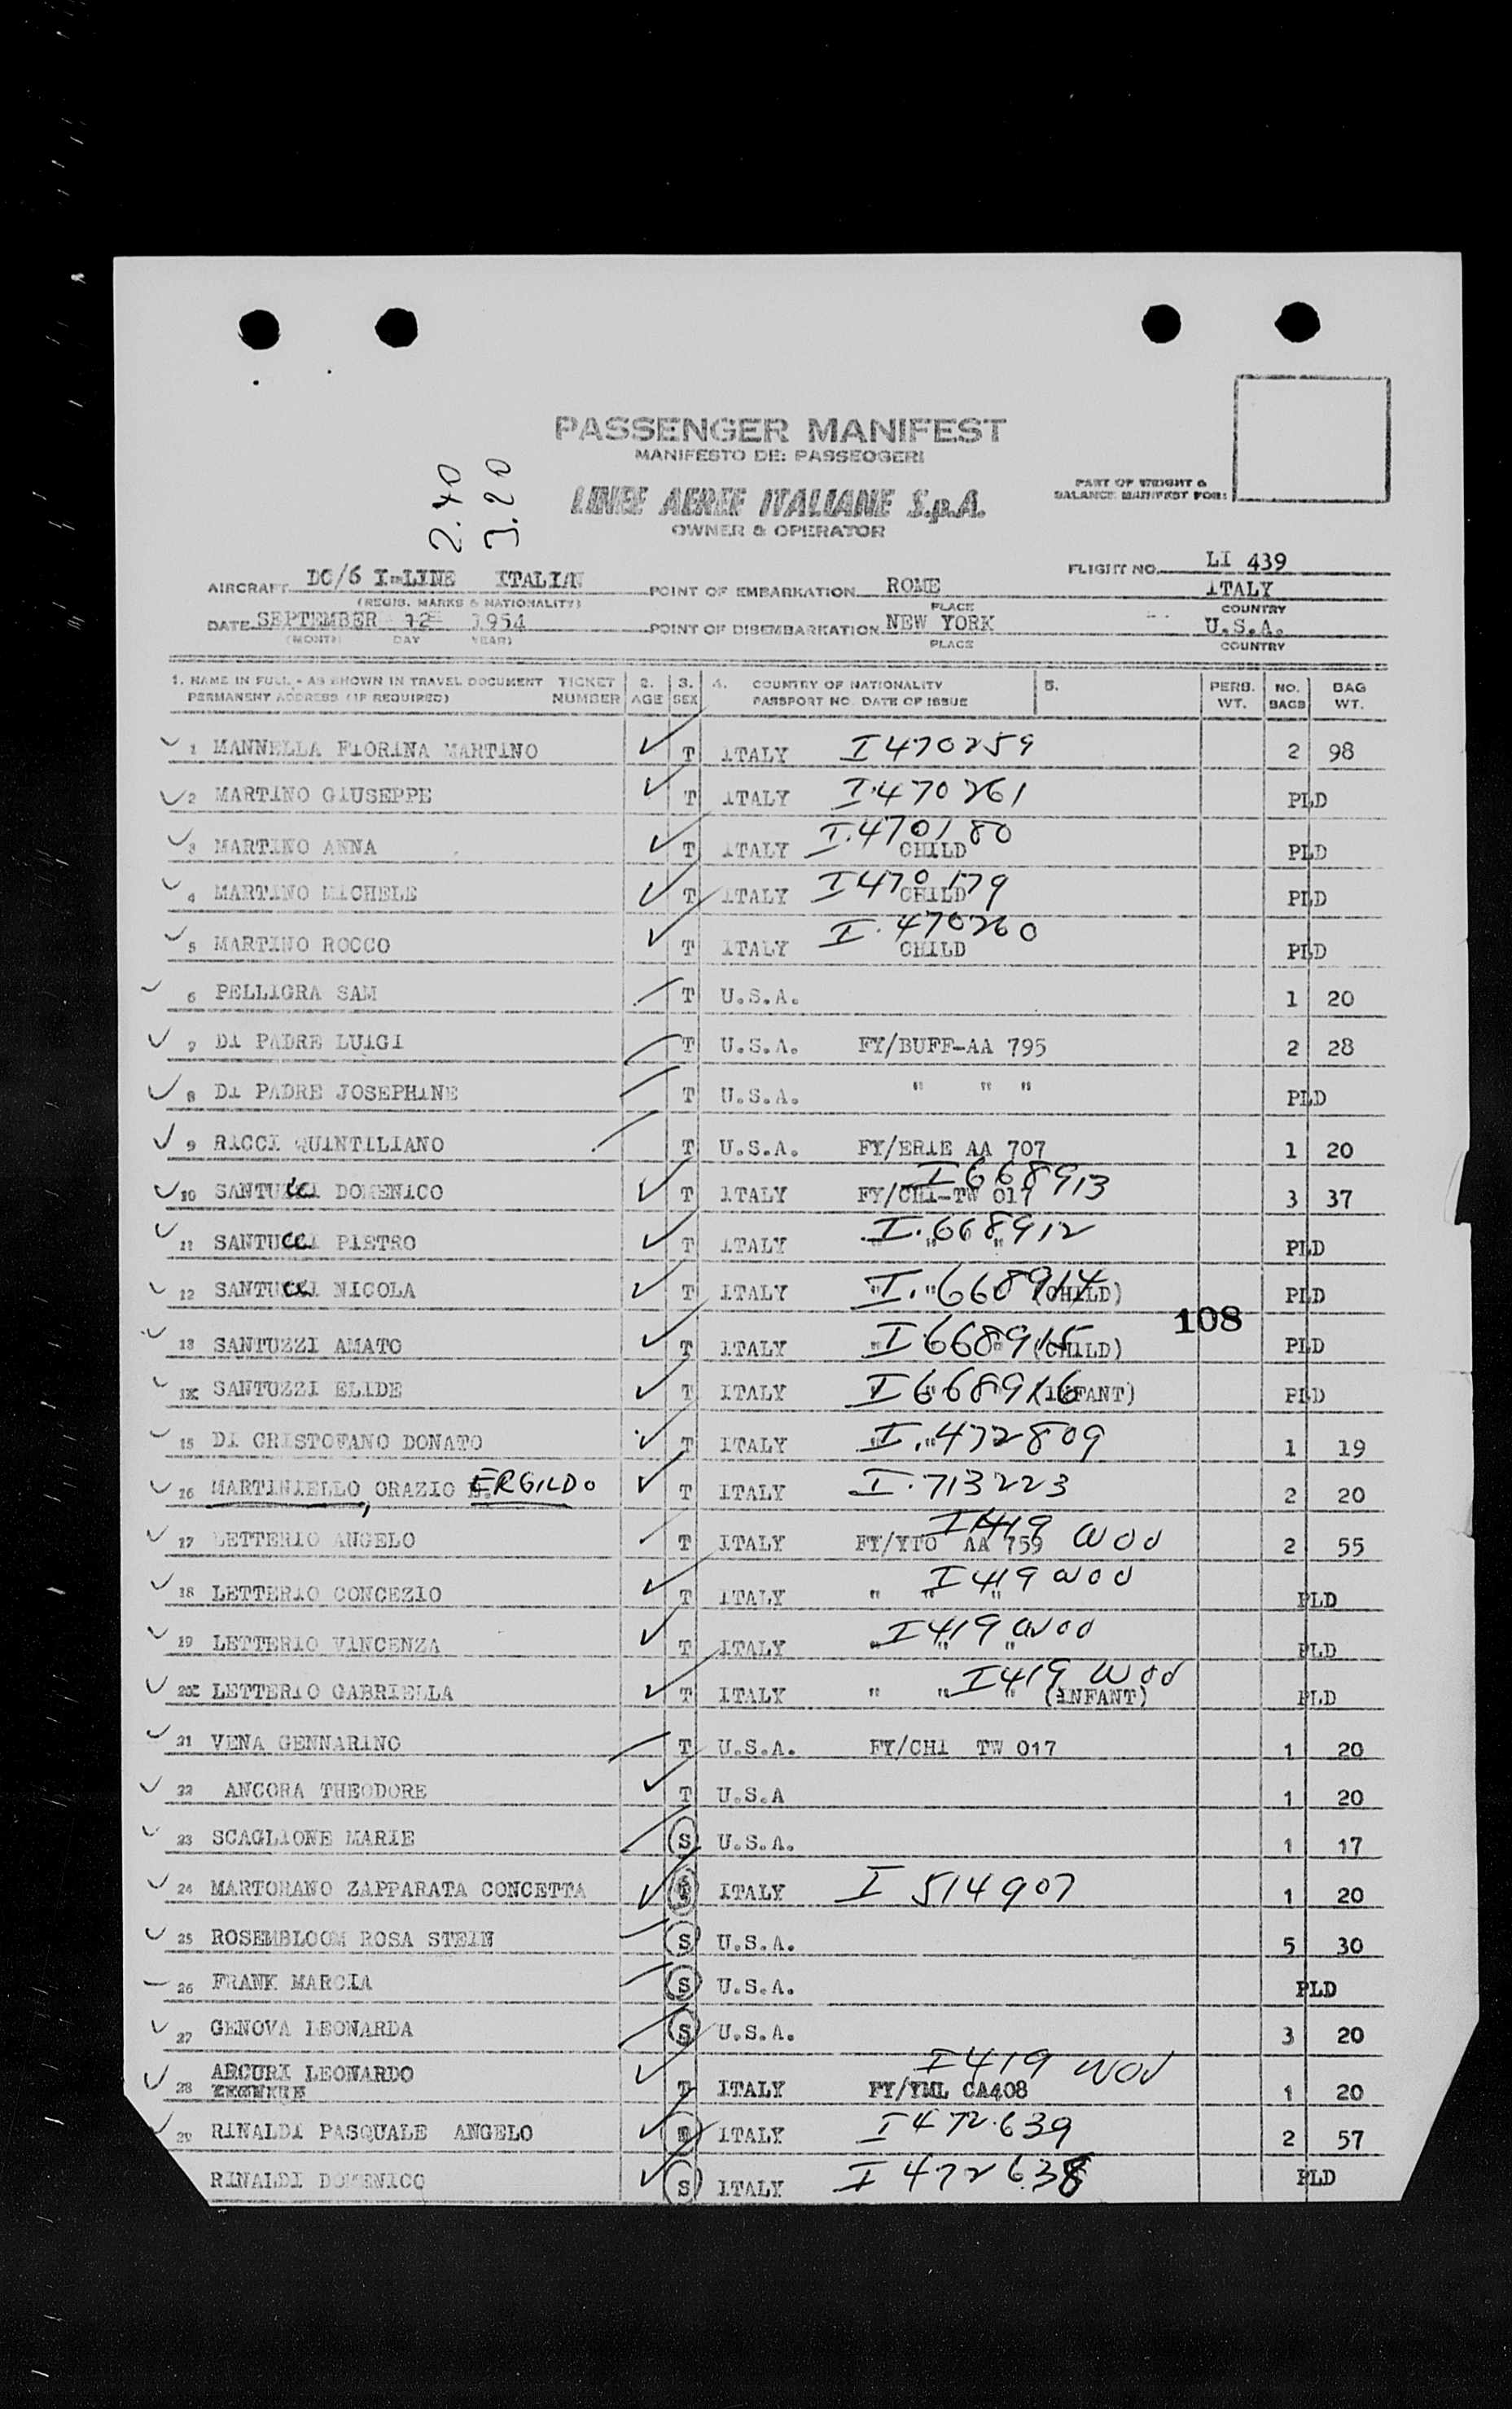 2.40
3.20
PASSENGER MANIFEST
MANIFESTO DE: PASSEOGERI
LINEE AEREE ITALIANE S.p.A.
OWNER & OPERATOR
PART OF WEIGHT &
BALANCE MANIFEST FOR:
FLIGHT NO. LI 439
AIRCRAFT DC/6 I-LINE ITALIAN POINT OF EMBARKATION ROME ITALY
(REGIS. MARKS & NATIONALITY) PLACE COUNTRY
DATE SEPTEMBER 12 1954 POINT OF DISEMBARKATION NEW YORK U.S.A.
(MONTH DAY YEAR) PLACE COUNTRY
1. NAME IN FULL - AS SHOWN IN TRAVEL DOCUMENT TICKET 2. 3. 4. COUNTRY OF NATIONALITY 5. PERS. NO. BAG
PERMANENT ADDRESS (IF REQUIRED) NUMBER AGE SEX PASSPORT NO. DATE OF ISSUE WT. BAGS WT.
1 MANNELLA FIORINA MARTINO T ITALY I 470259 2 98
2 MARTINO GIUSEPPE T ITALY I.470261 PLD
3 MARTINO ANNA T ITALY I.470180 CHILD PLD
4 MARTINO MICHELE T ITALY I470179 CHILD PLD
5 MARTINO ROCCO T ITALY I.470260 CHILD PLD
6 PELLIGRA SAM T U.S.A. 1 20
7 DI PADRE LUIGI T U.S.A. FY/BUFF-AA 795 2 28
8 DI PADRE JOSEPHINE T U.S.A. " " " PLD
9 RICCI QUINTILIANO T U.S.A. FY/ERIE AA 707 1 20
10 SANTUCCI DOMENICO T ITALY FY/CHI-TW 017 I668913 3 37
11 SANTUCCI PIETRO T ITALY " " " I.668912 PLD
12 SANTUCCI NICOLA T ITALY " " I.668914 (CHILD) PLD
108
13 SANTUZZI AMATO T ITALY " " I668915 (CHILD) PLD
14 SANTUZZI ELIDE T ITALY I668916 (INFANT) PLD
15 DI CRISTOFANO DONATO T ITALY " " I.472809 1 19
16 MARTINIELLO, ORAZIO ERGILDO T ITALY I.713223 2 20
17 LETTERIO ANGELO T ITALY FY/YTO AA 759 I419 WOD 2 55
18 LETTERIO CONCEZIO T ITALY " " " I419 WOD PLD
19 LETTERIO VINCENZA T ITALY " " " I419 WOD PLD
20 LETTERIO GABRIELLA T ITALY " " " I419 WOD (INFANT) PLD
21 VENA GENNARINO T U.S.A. FY/CHI TW 017 1 20
22 ANCORA THEODORE T U.S.A 1 20
23 SCAGLIONE MARIE S U.S.A. 1 17
24 MARTORANO ZAPPARATA CONCETTA ITALY I 514907 1 20
25 ROSEMBLOOM ROSA STEIN S U.S.A. 5 30
26 FRANK MARCIA S U.S.A. PLD
27 GENOVA LEONARDA S U.S.A. 3 20
28 ARCURI LEONARDO T ITALY FY/YML CA408 I419 WOD 1 20
29 RINALDI PASQUALE ANGELO T ITALY I472.639 2 57
RINALDI DOMENICO S ITALY I 472638 PLD